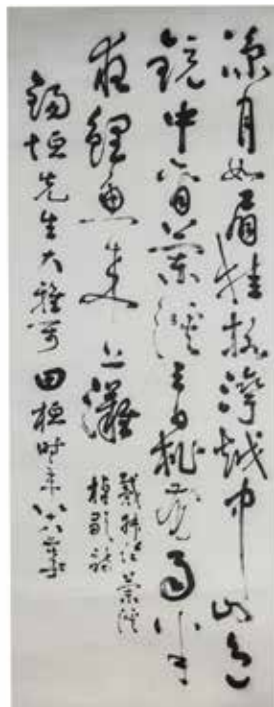 涼月如眉挂柳灣越中山色
鏡中看蘭溪三日桃花雨半
夜鯉魚來上灘
戴叔倫蘭溪
棹歌詩
錫恒先生大雅 田桓時年